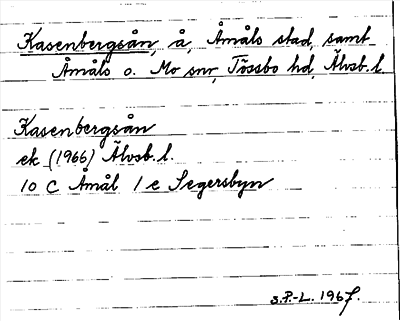 Kasenbergsån, å, Åmåls stad, samt
Åmåls o. Mo snr, Tössbo hd, Älvsb. l.
Kasenbergsån
ek (1966) Älvsb. l.
10 C Åmål 1 e Segersbyn
S.P.-L. 1967.